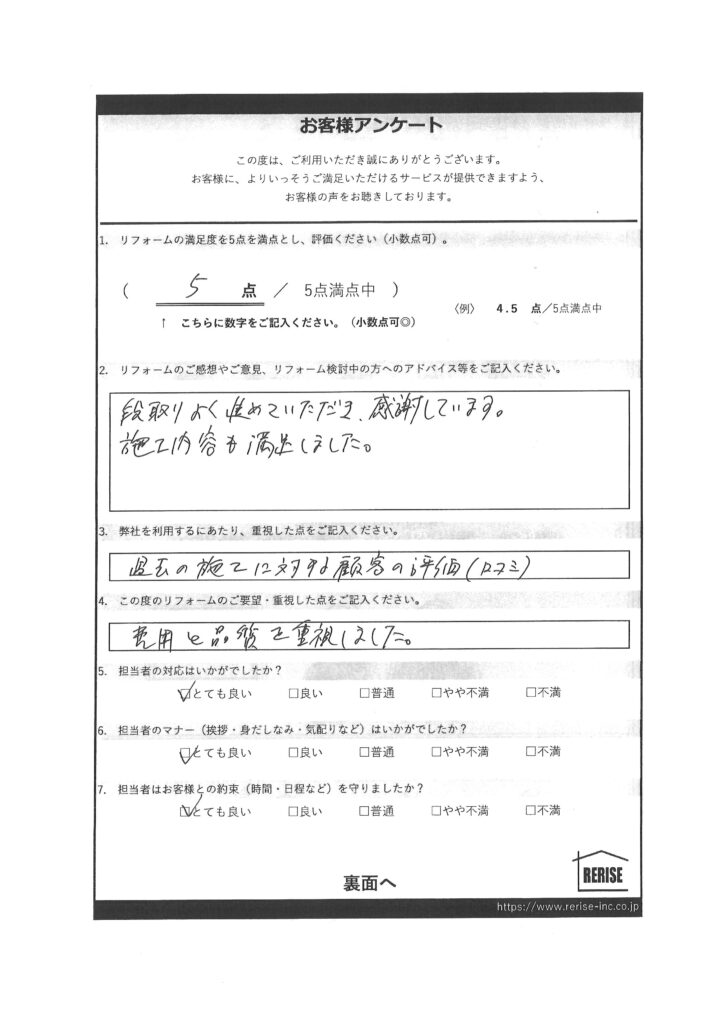 お客様アンケート
この度は、ご利用いただき誠にありがとうございます。
お客様に、よりいっそうご満足いただけるサービスが提供できますよう、
お客様の声をお聴きしております。
1. リフォームの満足度を5点を満点とし、評価ください（小数点可）。
( 5 点 ／ 5点満点中 )
〈例〉 4.5 点／5点満点中
↑ こちらに数字をご記入ください。（小数点可◎）
2. リフォームのご感想やご意見、リフォーム検討中の方へのアドバイス等をご記入ください。
段取りよく進めていただき、感謝しています。
施工内容も満足しました。
3. 弊社を利用するにあたり、重視した点をご記入ください。
過去の施工に対する顧客の評価(口コミ)
4. この度のリフォームのご要望・重視した点をご記入ください。
費用と品質を重視しました。
5. 担当者の対応はいかがでしたか？
☑とても良い □良い □普通 □やや不満 □不満
6. 担当者のマナー（挨拶・身だしなみ・気配りなど）はいかがでしたか？
☑とても良い □良い □普通 □やや不満 □不満
7. 担当者はお客様との約束（時間・日程など）を守りましたか？
☑とても良い □良い □普通 □やや不満 □不満
裏面へ
RERISE
https://www.rerise-inc.co.jp